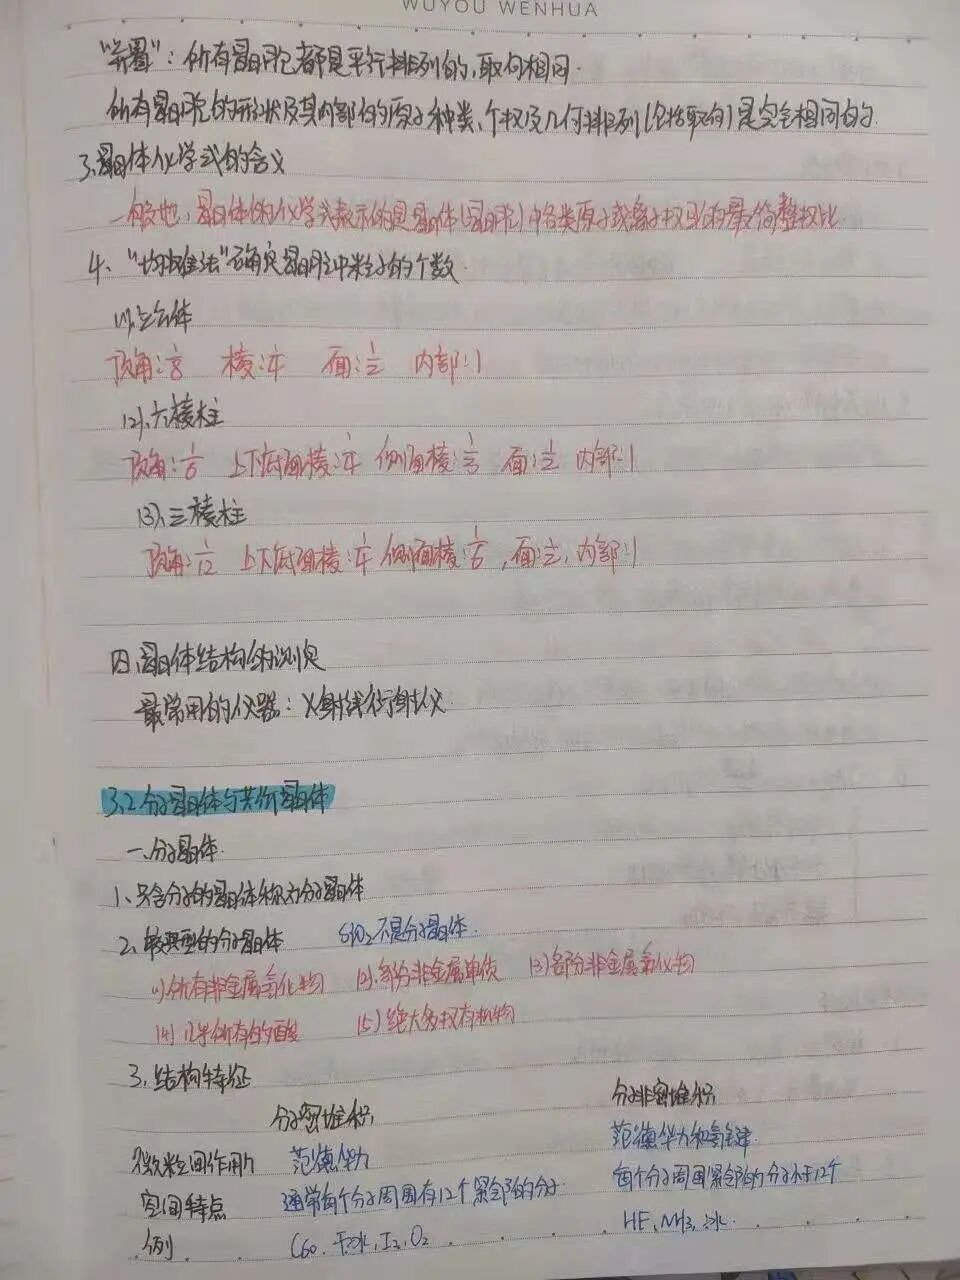 WUYOU WENHUA
"并置"：所有晶胞都是平行排列的，取向相同.
所有晶胞的形状及其内部的原子种类、个数及几何排列(包括取向)是完全相同的
3.晶体化学式的含义
一般地，晶体的化学式表示的是晶体(晶胞)中各类原子或离子数目的最简整数比.
4、"均摊法"确定晶胞中粒子的个数.
(1)立方体
顶角:1/8 棱:1/4 面:1/2 内部:1
(2)、六棱柱
顶角:1/6 上下底面棱:1/4 侧面棱:1/3 面:1/2 内部:1
(3)、三棱柱
顶角:1/12 上下底面棱:1/4 侧面棱:1/6，面:1/2，内部:1
四、晶体结构的测定
最常用的仪器：X射线衍射仪.
3.2分子晶体与共价晶体
一.分子晶体.
1、只含分子的晶体称为分子晶体
2、较典型的分子晶体 SiO2不是分子晶体.
(1)所有非金属氢化物 (2)、部分非金属单质 (3)部分非金属氧化物
(4)几乎所有的酸 (5)绝大多数有机物
3、结构特征
分子密堆积 分子非密堆积
微粒间作用力 范德华力 范德华力和氢键
空间特点 通常每个分子周围有12个紧邻的分子. 每个分子周围紧邻的分子小于12个
例 C60、干冰、I2、O2 HF、NH3、冰.